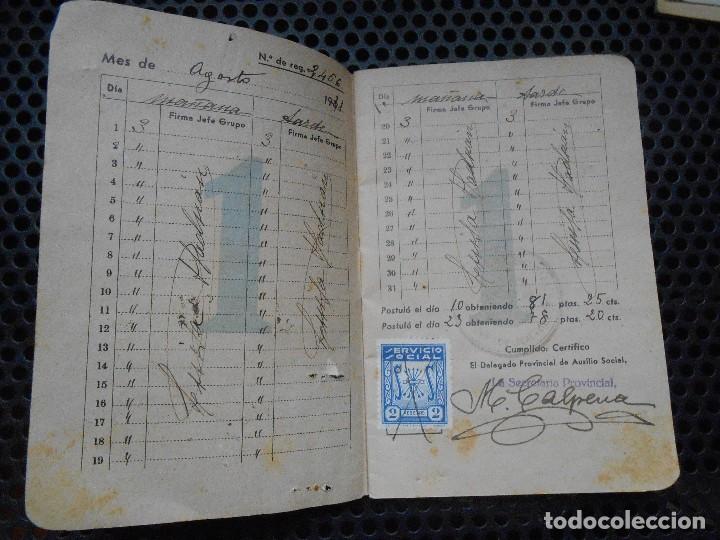 Mes de Agosto
N.º de reg. 2406
Día
mañana
Firma Jefe Grupo
tarde
Firma Jefe Grupo
1 3 3
2 " "
3 " "
4 " "
5 " "
6 " "
7 " "
8 " "
9 " "
10 " "
11 " "
12 " "
13 " "
14 " "
15 " "
16 " "
17 " "
18 " "
19 " "
1
Día
mañana
Firma Jefe Grupo
tarde
Firma Jefe Grupo
20 3 3
21 " "
22 " "
23 " "
24 " "
25 " "
26 " "
27 " "
28 " "
29 " "
30 " "
31 " "
1
Postuló el día 10 obteniendo 81 ptas. 25 cts.
Postuló el día 23 obteniendo 78 ptas. 20 cts.
Cumplido: Certifico
El Delegado Provincial de Auxilio Social,
La Secretaria Provincial,
M. Calpena
SERVICIO
SOCIAL
2 PESETAS 2
todocoleccion.net